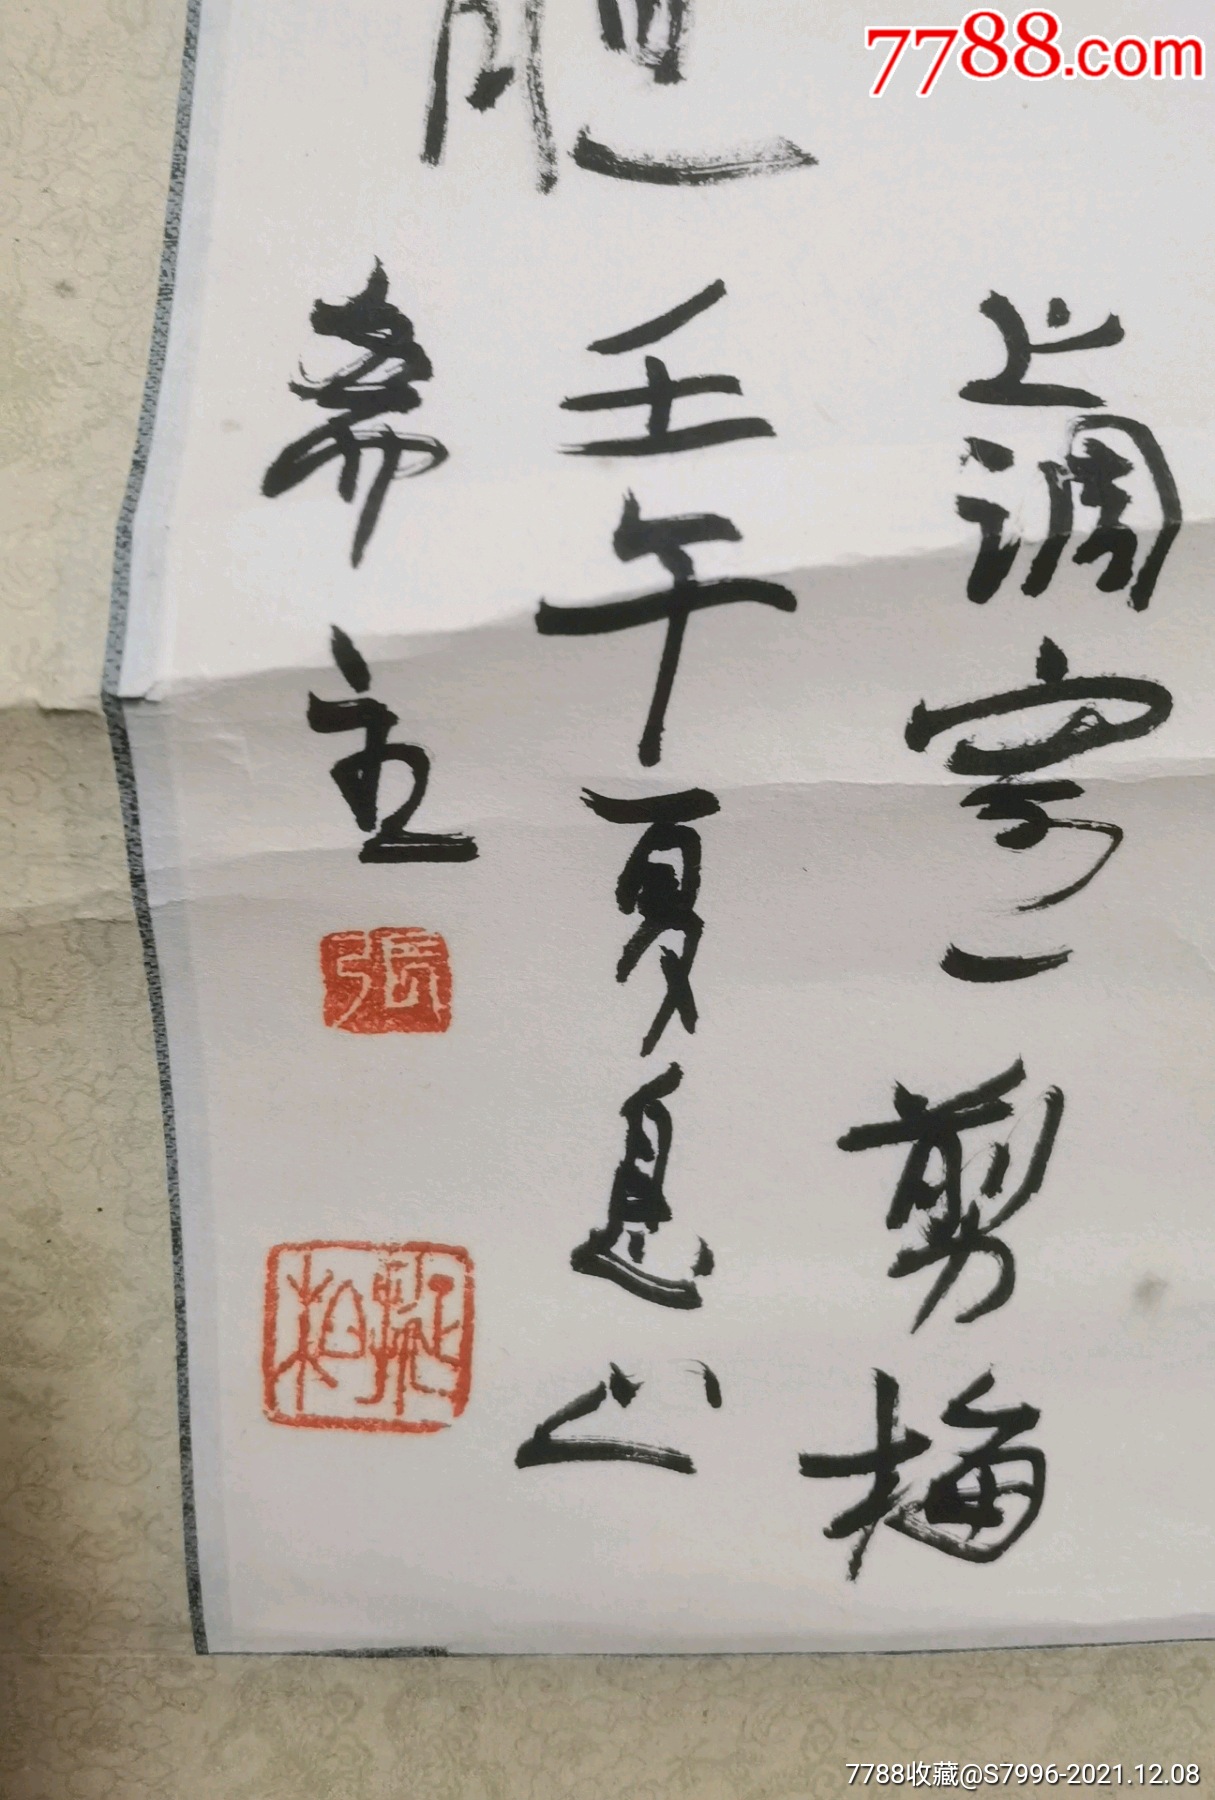 7788.com
上调寄一剪梅
壬午夏息心
斋主
張
7788收藏@S7996-2021.12.08